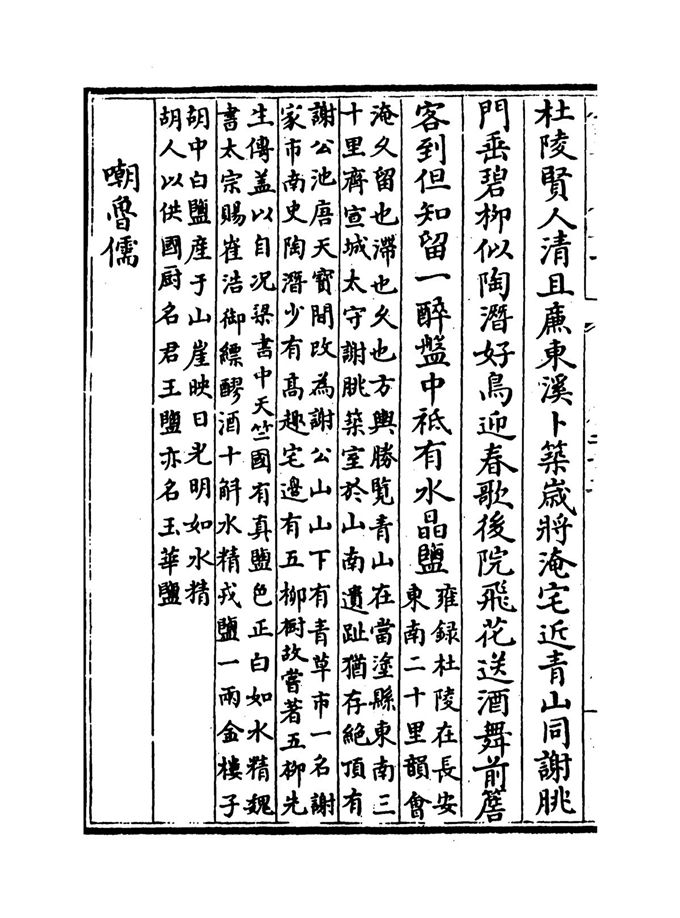 杜陵賢人清且廉東溪卜築歲將淹宅近青山同謝脁
門垂碧柳似陶潛好鳥迎春歌後院飛花送酒舞前簷
客到但知留一醉盤中祗有水晶鹽
雍録杜陵在長安
東南二十里韻會
淹久留也滯也久也方輿勝覽青山在當塗縣東南三
十里齊宣城太守謝脁築室於山南遺趾猶存絶頂有
謝公池唐天寶間改為謝公山山下有青草市一名謝
家市南史陶潛少有髙趣宅邉有五柳樹故嘗著五柳先
生傳盖以自况梁書中天竺國有真鹽色正白如水精魏
書太宗賜崔浩御縹醪酒十斛水精戎鹽一兩金樓子
胡中白鹽産于山崖映日光明如水精
胡人以供國厨名君王鹽亦名玉華鹽
嘲魯儒